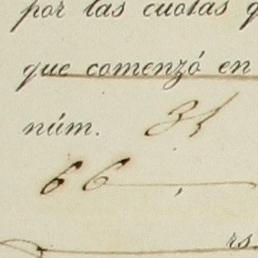 por las cuotas
que comenzó en
núm. 31
66
rs.